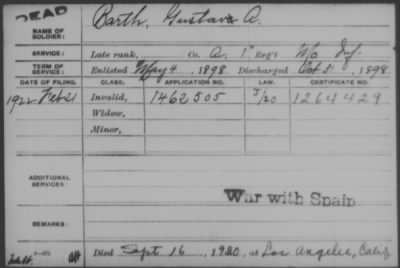 DEAD
NAME OF SOLDIER: Barth, Gustav A.
SERVICE: Late rank, Co. A, 1" Reg't Mo Inf.
TERM OF SERVICE: Enlisted May 4, 1898. Discharged Oct 31, 1898
DATE OF FILING. CLASS. APPLICATION NO. LAW. CERTIFICATE NO.
Invalid, 1462505 1264429
Widow,
Minor,
ADDITIONAL SERVICES:
War with Spain
REMARKS:
Died Sept 16, 1920, at Los Angeles, Calif